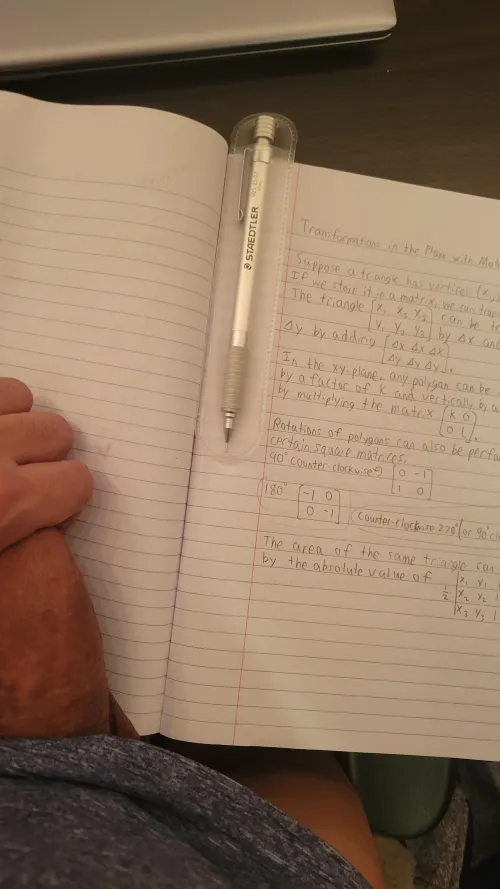 STAEDTLER
Transformations in the Plane with
Suppose a triangle has vertices (x,
If we store it in a matrix, we can
The triangle [x₁ x₂ x₃ can be
y₁ y₂ y₃] by Δx and
Δy by adding [Δx Δx Δx
Δy Δy Δy].
In the xy-plane, any polygon can be
by a factor of k and vertically by a
by multiplying the matrix [k 0
0 1].
Rotations of polygons can also be
certain square matrices.
90° counter-clockwise [0 -1
1 0]
180° [-1 0
0 -1]
counter-clockwise 270° (or 90°
The area of the same triangle can
by the absolute value of 1/2 |x₁ y₁ 1
x₂ y₂ 1
x₃ y₃ 1